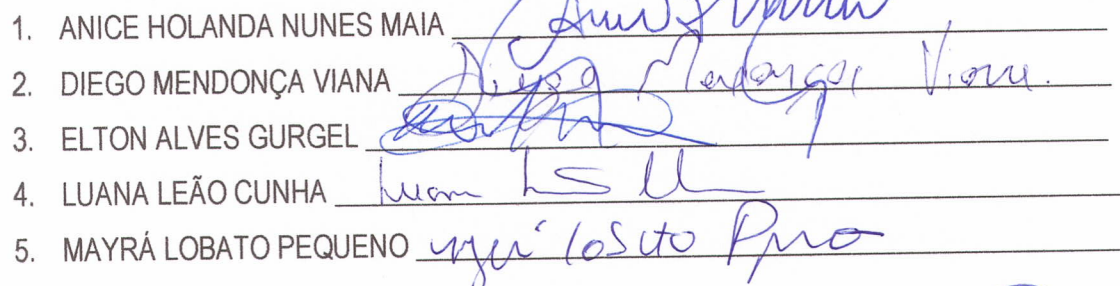 1. ANICE HOLANDA NUNES MAIA
2. DIEGO MENDONÇA VIANA Diego Mendonça Viana.
3. ELTON ALVES GURGEL
4. LUANA LEÃO CUNHA Luana
5. MAYRÁ LOBATO PEQUENO